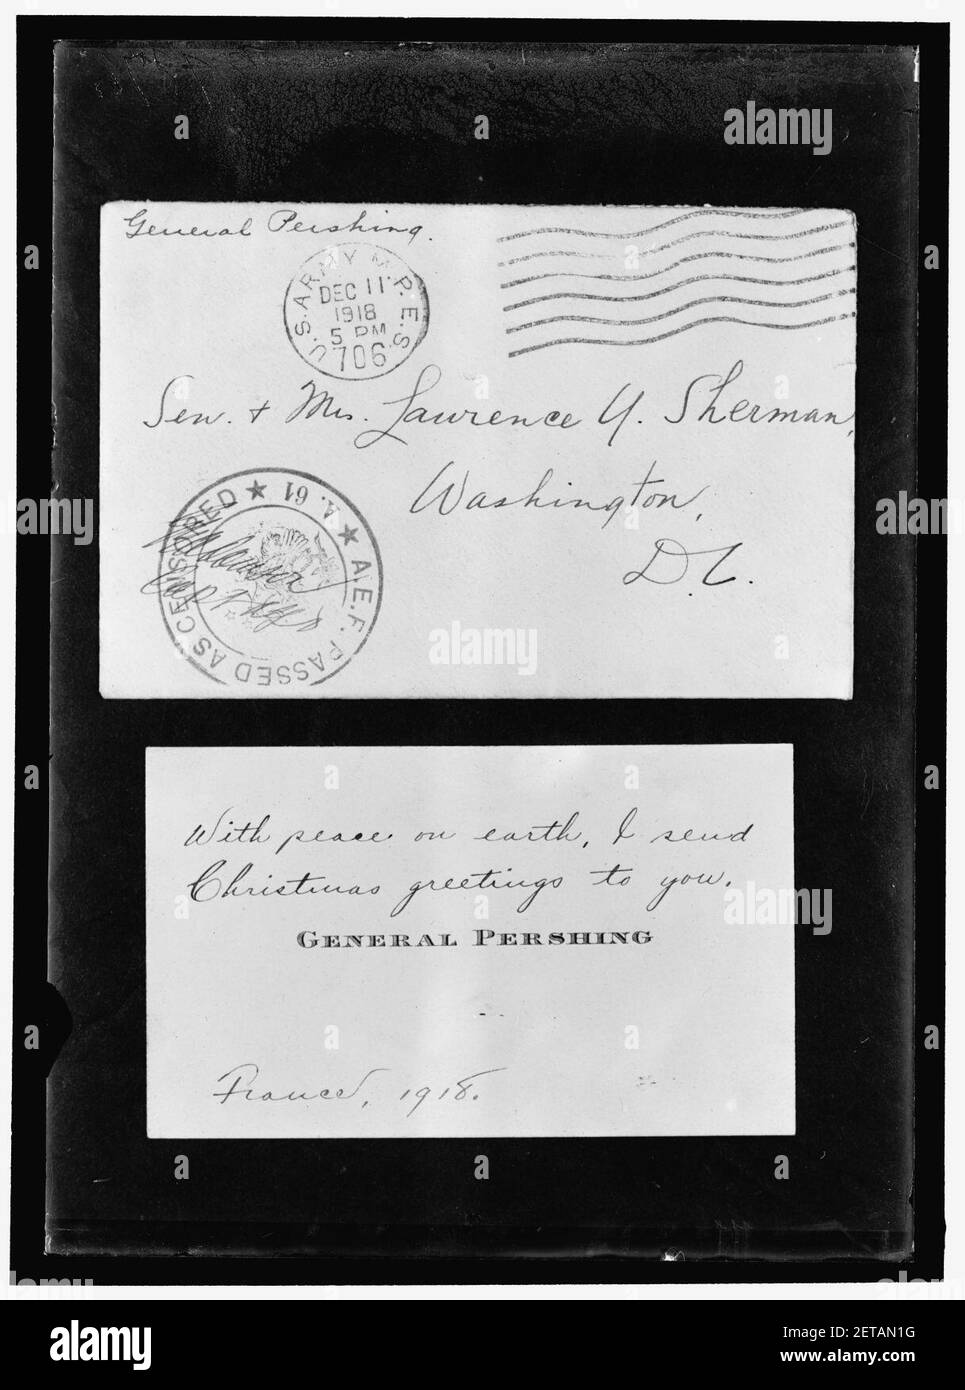 General Pershing.
U.S. ARMY M.P.E.S.
DEC 11
1918
5 PM
706
Sen. & Mrs. Lawrence Y. Sherman,
Washington,
D.C.
A.E.F. PASSED AS CENSORED
A. 61
With peace on earth, I send
Christmas greetings to you.
GENERAL PERSHING
France, 1918.
alamy
alamy
Image ID: 2ETAN1G
www.alamy.com